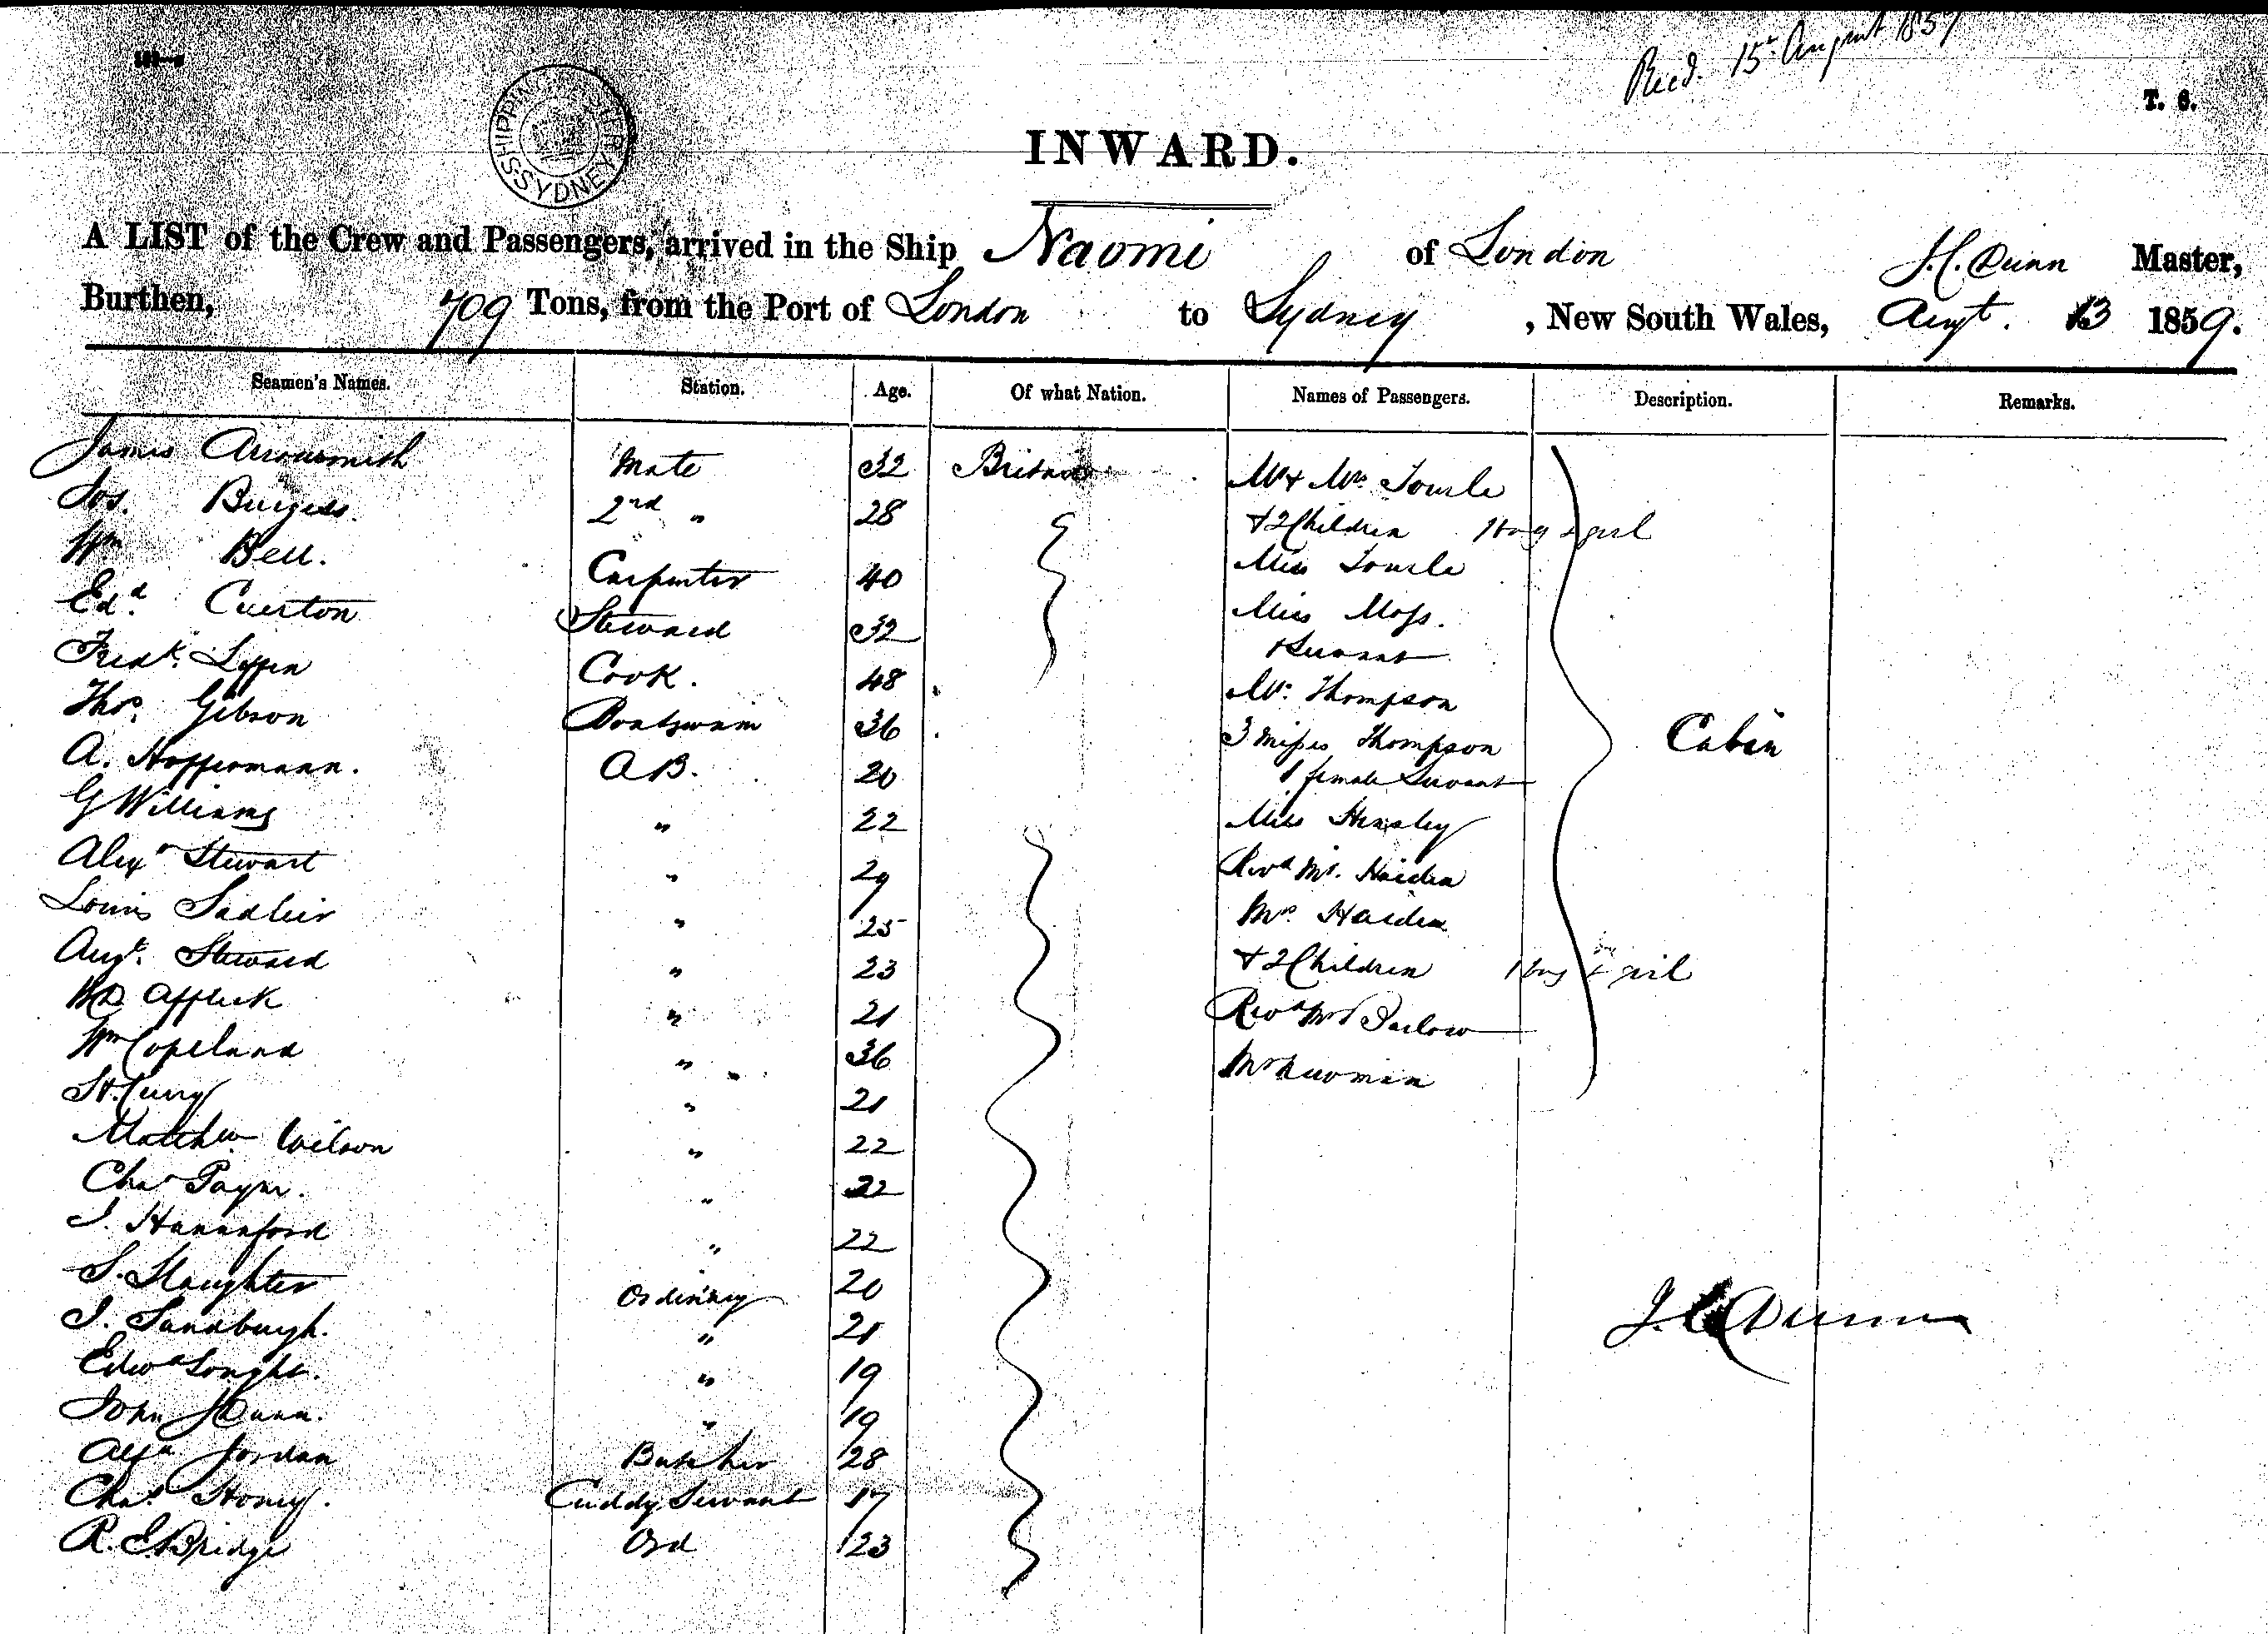 Recd. 15th August 1859
T. S.
SHIPPING MASTER SYDNEY
INWARD.
A LIST of the Crew and Passengers, arrived in the Ship Naomi of London J. C. Dunn Master,
Burthen, 709 Tons, from the Port of London to Sydney, New South Wales, Augt. 13 1859.
Seamen's Names. Station. Age. Of what Nation. Names of Passengers. Description. Remarks.
James Arrowsmith Mate 32 Mr & Mrs Tourle
Jos. Burgess 2nd " 28 & 2 Children 1 boy 1 girl
Wm Bell. Carpenter 40 Miss Tourle
Edd. Cuerton Steward 32 Miss Moss.
Fredk. Cook. 48 & Servant
Thos. Gibson Boatswain 36 Mr. Thompson
A. Hoffermann. A.B. 20 3 Misses Thompson Cabin
1 female Servant
G Williams " 22 Miss Hensley
Alexr Stewart " 29 Revd Mr. Haiden
Louis Sadleir " 25 Mrs. Haiden
Augt. Steward " 23 & 2 Children 1 boy 1 girl
Affleck " 21 Revd Mr Barlow
Wm Copeland " 36 Mr Newman
H. Curry " 21
Matthw. Wilson " 22
Chas Payne. " 22
J. Hannaford " 22
S. Slaughter Ordinary 20
J. Sandbugh. " 21
Edwd " 19
John J Dunn. " 19
Alexr Jordan Butcher 28
Chas. Honey. Cuddy Servant 17
R. E. Bridge Ord 23
J. C. Dunn